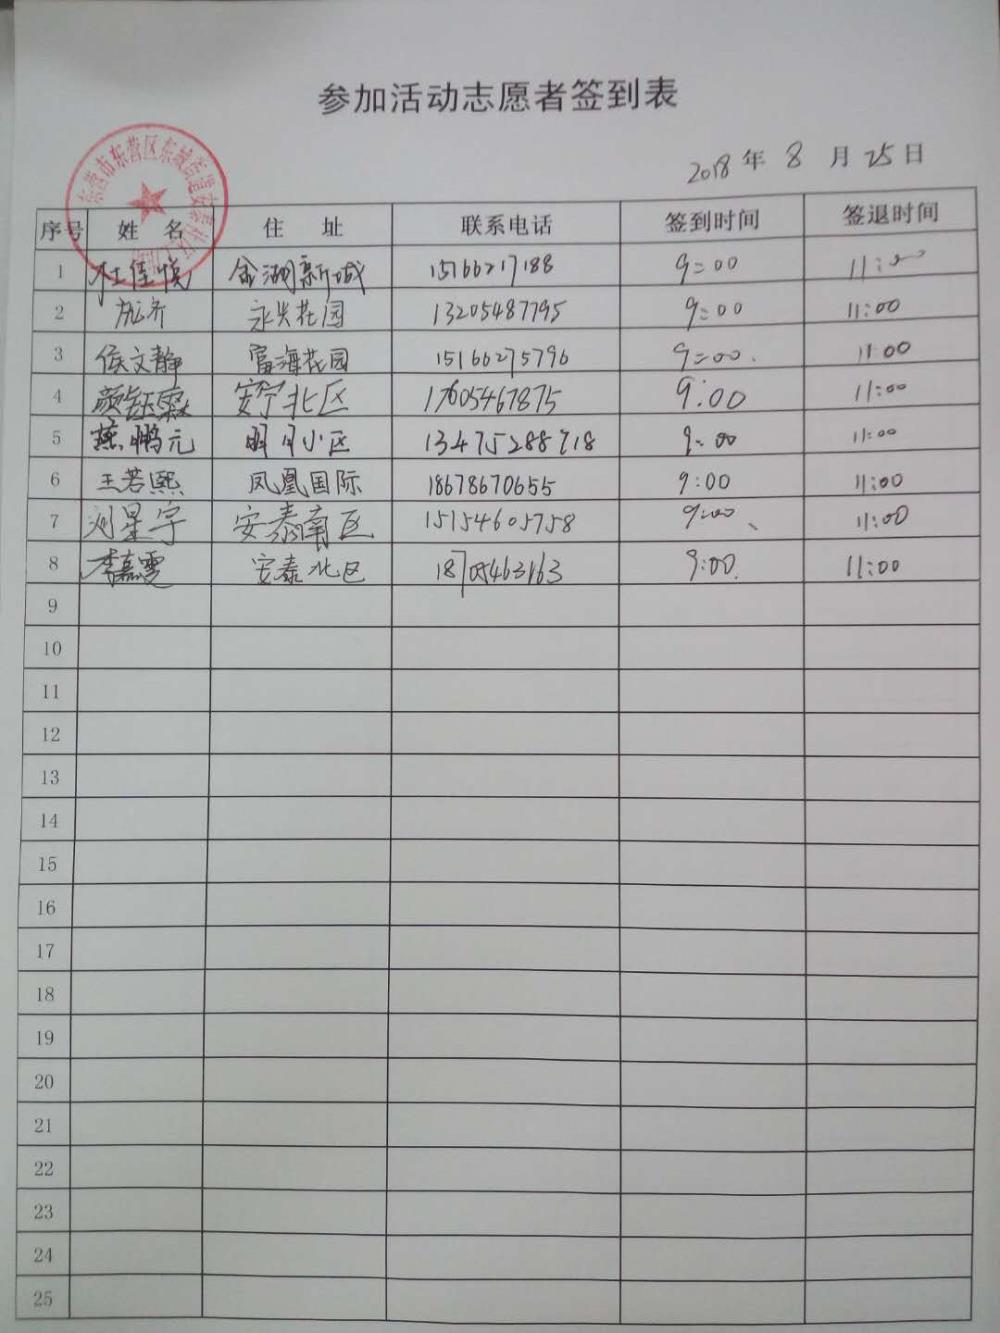 参加活动志愿者签到表
2018年 8 月 25日
序号 姓 名 住 址 联系电话 签到时间 签退时间
1 杜佳悦 金湖新城 15166217188 9:00 11:00
2 永安花园 13205487795 9:00 11:00
3 侯文静 富海花园 15166275796 9:00. 11:00
4 安宁北区 17605467875 9:00 11:00
5 燕鹏元 明月小区 13475288718 9:00 11:00
6 王若熙 凤凰国际 18678670655 9:00 11:00
7 刘星宇 安泰南区 15154605758 9:00、 11:00
8 李嘉雯 安泰北区 18705463163 9:00. 11:00
9
10
11
12
13
14
15
16
17
18
19
20
21
22
23
24
25